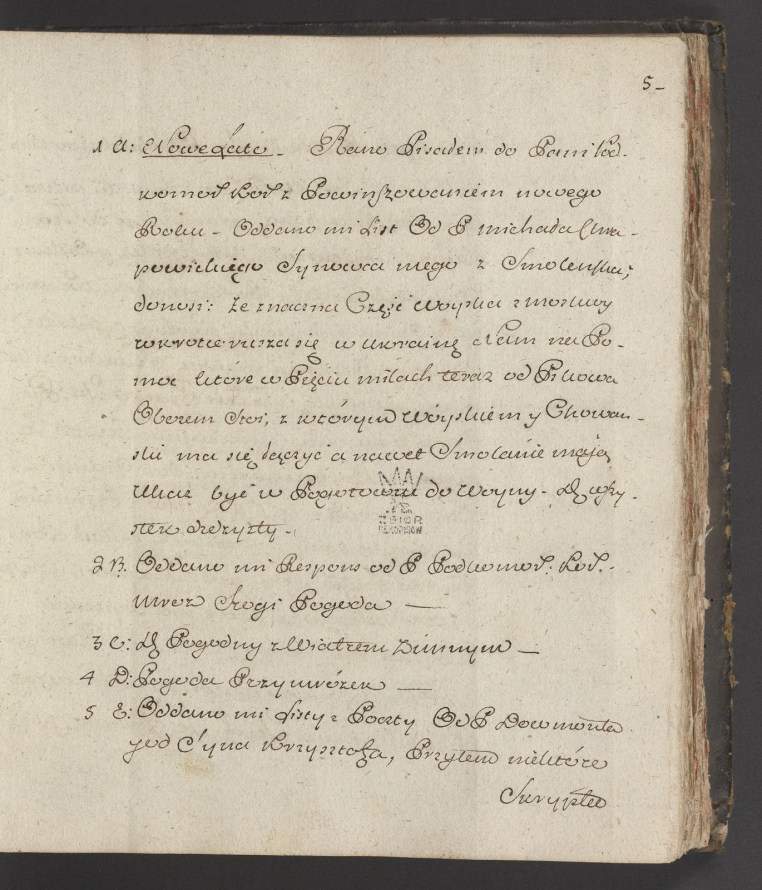 5_
1 A: Nowe Lato_ Rano Pisałem do Pani Pod-
komor: z Powinszowaniem nowego
Roku_ Oddano mi List Od P Michała Chra-
powickiego Synowca mego z Smolenska;
donosi: Ze znaczna Częśc Woyska z Moskwy
wkrotce rusza się w Ukrainę Nam na Po-
moc ktore w Pięciu milach teraz od Pskowa
Oborem stoi, z ktorym Woyskiem y Chowan-
ski ma się łączyć a nawet Smolanie maią
Ukaz być w Pogotowiu do Woyny_
stek
2 B. Oddano mi Respons od P Podkomor:
Mroz Srogi Pogoda —
3 C: Pogodny z Wiatrem Zimnym —
4 D: Pogoda Przymrozek —
5 E: Oddano mi Listy z Poczty Od P Dowmonta
y od Syna Krzysztofa, Przytem niektóre
Skrypta
ZBIOR